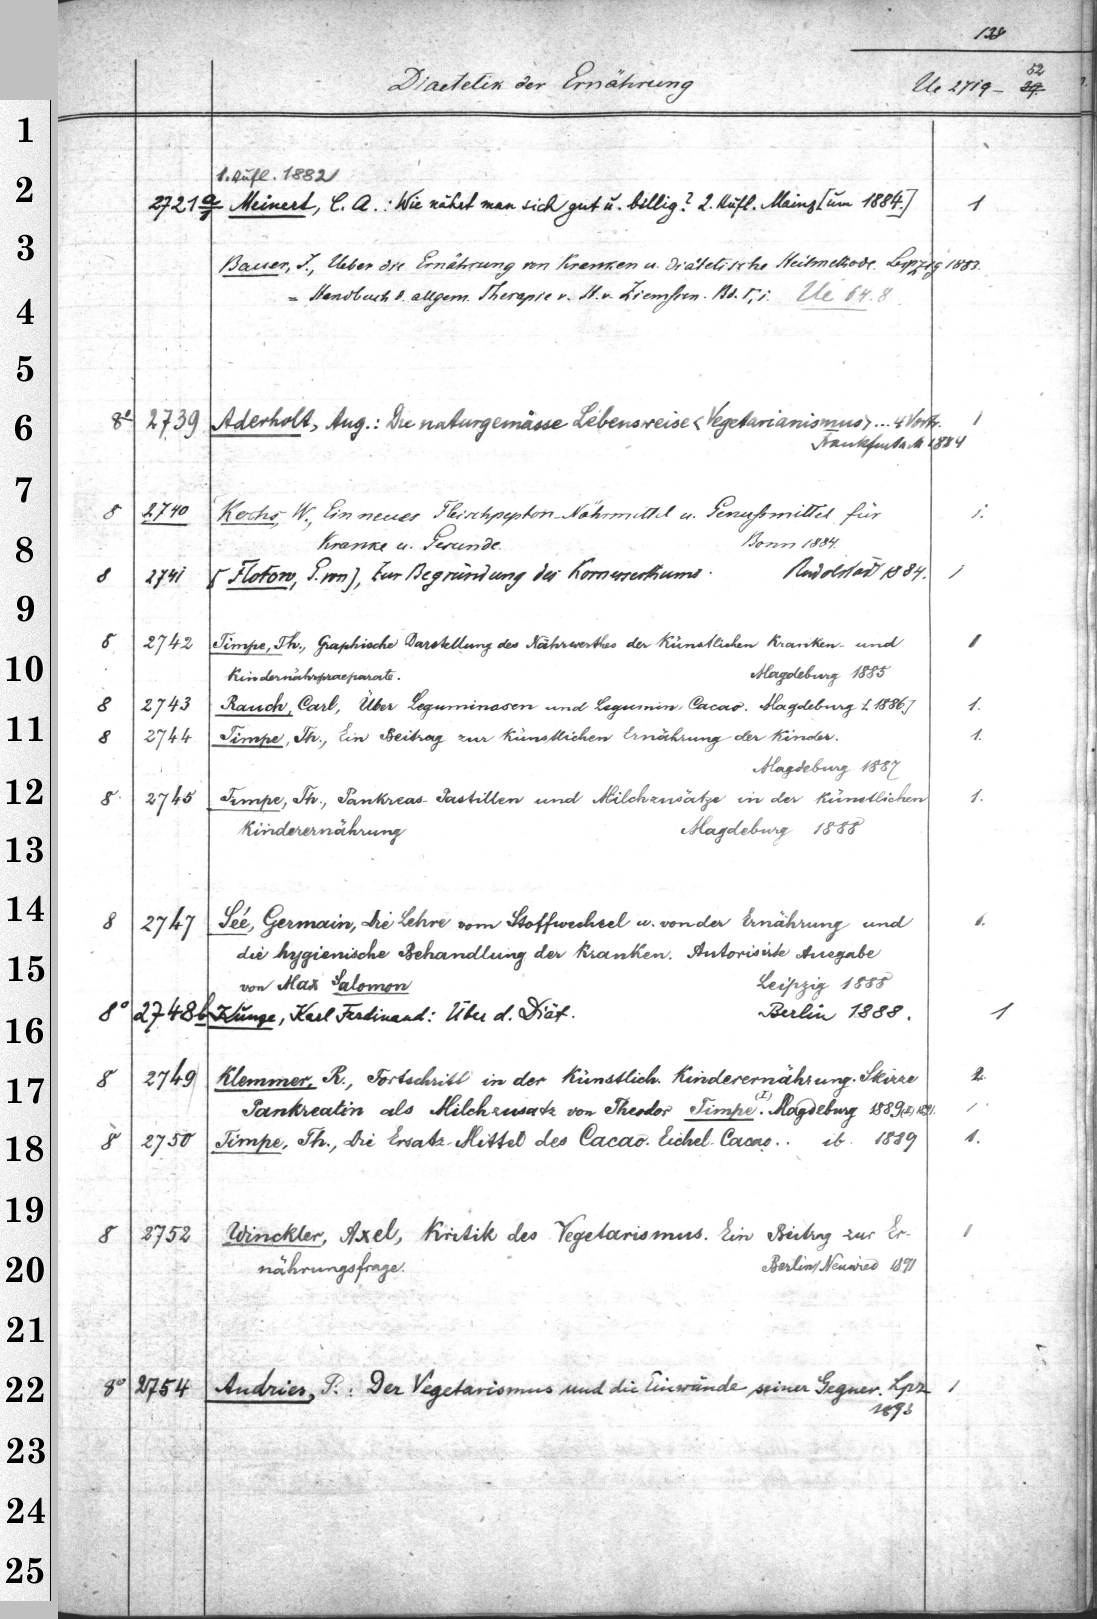 138
Diaetetik der Ernährung Ue 2719- 52 39.
1
2
3
4
5
6
7
8
9
10
11
12
13
14
15
16
17
18
19
20
21
22
23
24
25
1. Aufl. 1882
2721 g Meinert, C. A.: Wie nährt man sich gut u. billig? 2. Aufl. Mainz [um 1884.] 1
Bauer, J., Ueber die Ernährung von Kranken u. diätetische Heilmethode. Leipzig 1883.
= Handbuch d. allgem. Therapie v. H. v. Ziemssen. Bd. I, 1. Ue 64.8
8° 2739 Aderholt, Aug.: Die naturgemässe Lebensweise <Vegetarianismus> ... 4 Vortr. 1
Frankfurt a. M 1884
8 2740 Kochs, W., Ein neues Fleischpepton-Nährmittel u. Genußmittel für 1.
Kranke u. Gesunde. Bonn 1884.
8 2741 [Flotow, G. von], Zur Begründung des Kornersertums. Rudolstadt 1884. 1
8 2742 Timpe, Th., Graphische Darstellung des Nährwerthes der künstlichen Kranken- und 1
Kindernährpraeparate. Magdeburg 1885
8 2743 Rauch, Carl, Über Leguminosen und Legumin. Cacao. Magdeburg [1886] 1.
8 2744 Timpe, Th., Ein Beitrag zur künstlichen Ernährung der Kinder. 1.
Magdeburg 1887
8 2745 Timpe, Th., Pankreas-Pastillen und Milchzusätze in der künstlichen 1.
Kinderernährung Magdeburg 1888
8 2747 Sée, Germain, Die Lehre vom Stoffwechsel u. von der Ernährung und 1.
die hygienische Behandlung der Kranken. Autorisirte Ausgabe
von Max Salomon Leipzig 1888
8° 2748b Kunge, Karl Ferdinand: Über d. Diät. Berlin 1888. 1
8 2749 Klemmer, R., Fortschritt in der künstlich. Kinderernährung. Skizze 2.
Pankreatin als Milchzusatz von Theodor Timpe (I). Magdeburg 1889 (II) 1891. 1
8 2750 Timpe, Th., Die Ersatz-Mittel des Cacao. Eichel-Cacao.. ib. 1889 1.
8 2752 Winckler, Axel, Kritik des Vegetarismus. Ein Beitrag zur Er- 1
nährungsfrage. Berlin/Neuwied 1891
8° 2754 Andries, P.: Der Vegetarismus und die Einwände seiner Gegner. Lpz 1
1893